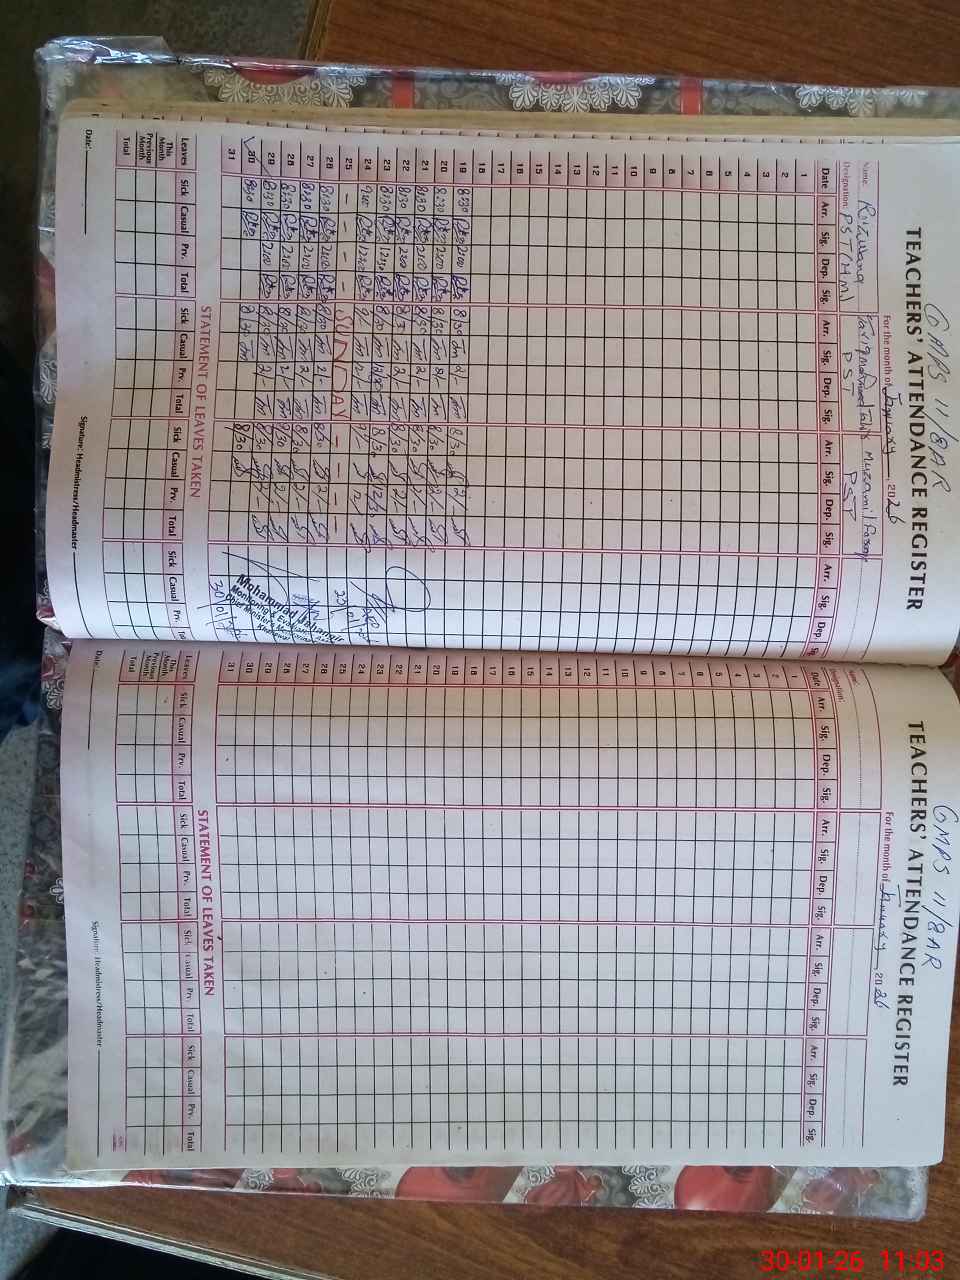 GMPS 11/8AR
TEACHERS' ATTENDANCE REGISTER
For the month of January, 2026
Name: Tariq Mahmood Tahir Muzamil Farooq
Designation: PST (H.M) PST PST
Date Arr. Sig. Dep. Sig. Arr. Sig. Dep. Sig. Arr. Sig. Dep. Sig. Arr. Sig. Dep.
1
2
3
4
5
6
7
8
9
10
11
12
13
14
15
16
17
18
19 8:30 2:00 8/30 2/- 8/30 2/-
20 8:30 2:00 8/30 2/- 8/30 2/-
21 8:30 2:00 8/30 2/- 8/30 2/-
22 8:30 2:00 8/30 2/- 8/30 2/-
23 8:30 12:30 8/30 12/30 8/30 12/30
24 9:00 12:00 9/- 12/- 9/- 12/-
25 - - - - SUNDAY - - - -
26 8:30 2:00 8/30 2/- 8/30 2/-
27 8:30 2:00 8/30 2/- 8/30 2/-
28 8:30 2:00 8/30 2/- 8/30 2/-
29 8:30 2:00 8/30 2/- 8/30 2/-
30 8:30 8/30 8/30
31
Mohammad Jahangir
Monitoring & Evaluation
Chief Minister's Monitoring
Khanewal
30/01/2026
STATEMENT OF LEAVES TAKEN
Leaves Sick Casual Prv. Total Sick Casual Prv. Total Sick Casual Prv. Total Sick Casual Prv.
This Month
Previous Month
Total
Date: Signature: Headmistress/Headmaster
GMPS 11/8AR
TEACHERS' ATTENDANCE REGISTER
For the month of January, 2026
Name:
Designation:
Date Arr. Sig. Dep. Sig. Arr. Sig. Dep. Sig. Arr. Sig. Dep. Sig. Arr. Sig. Dep. Sig.
1
2
3
4
5
6
7
8
9
10
11
12
13
14
15
16
17
18
19
20
21
22
23
24
25
26
27
28
29
30
31
STATEMENT OF LEAVES TAKEN
Leaves Sick Casual Prv. Total Sick Casual Prv. Total Sick Casual Prv. Total Sick Casual Prv. Total
This Month
Previous Month
Total
Date: Signature: Headmistress/Headmaster
30-01-26 11:03